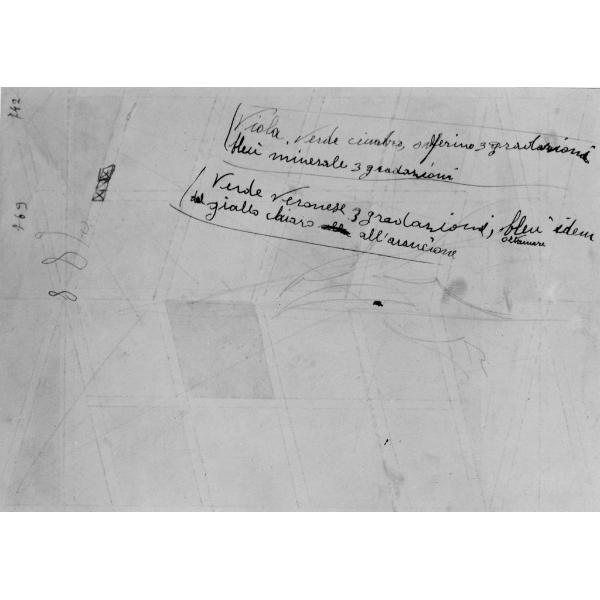 Viola, Verde cinabro, solferino 3 gradazioni
bleu minerale 3 gradazioni
Verde Veronese 3 gradazioni, bleu idem
oltremare
dal giallo chiaro all'arancione
742
269
8 8